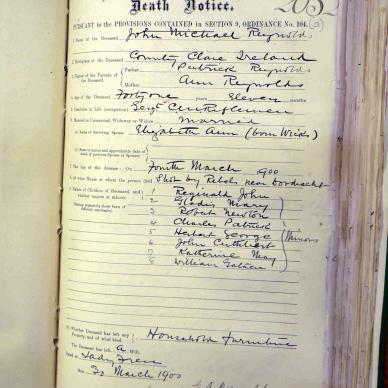 Death Notice.
PURSUANT to the PROVISIONS CONTAINED in SECTION 9, ORDINANCE No. 104.
1. Name of the Deceased John Michael Reynolds
2. Birthplace of the Deceased County Clare Ireland
3. Names of the Parents of the Deceased Father Patrick Reynolds
Mother Ann Reynolds
4. Age of the Deceased Forty one years Eleven months
5. Condition in Life (occupation) Sergt
6. Married or Unmarried, Widower or Widow Married
Name of Surviving Spouse Elizabeth Ann (born Wicks)
7. The day of the decease On Fourth March 1900
8. At what House or where the person died Shot by Rebels near Dordrecht
9. Names of Children of Deceased, and whether majors or minors
1 Reginald John
2 Gladis Mary
3 Robert Newton
4 Charles Patrick
5 Herbert George
6 John Cuthbert
7 Katherine May
8 William
Minors
10. Whether Deceased has left any Property, and of what kind Household furniture
The Deceased has left a Will.
Dated at Lady Frere
this 20 March 1900